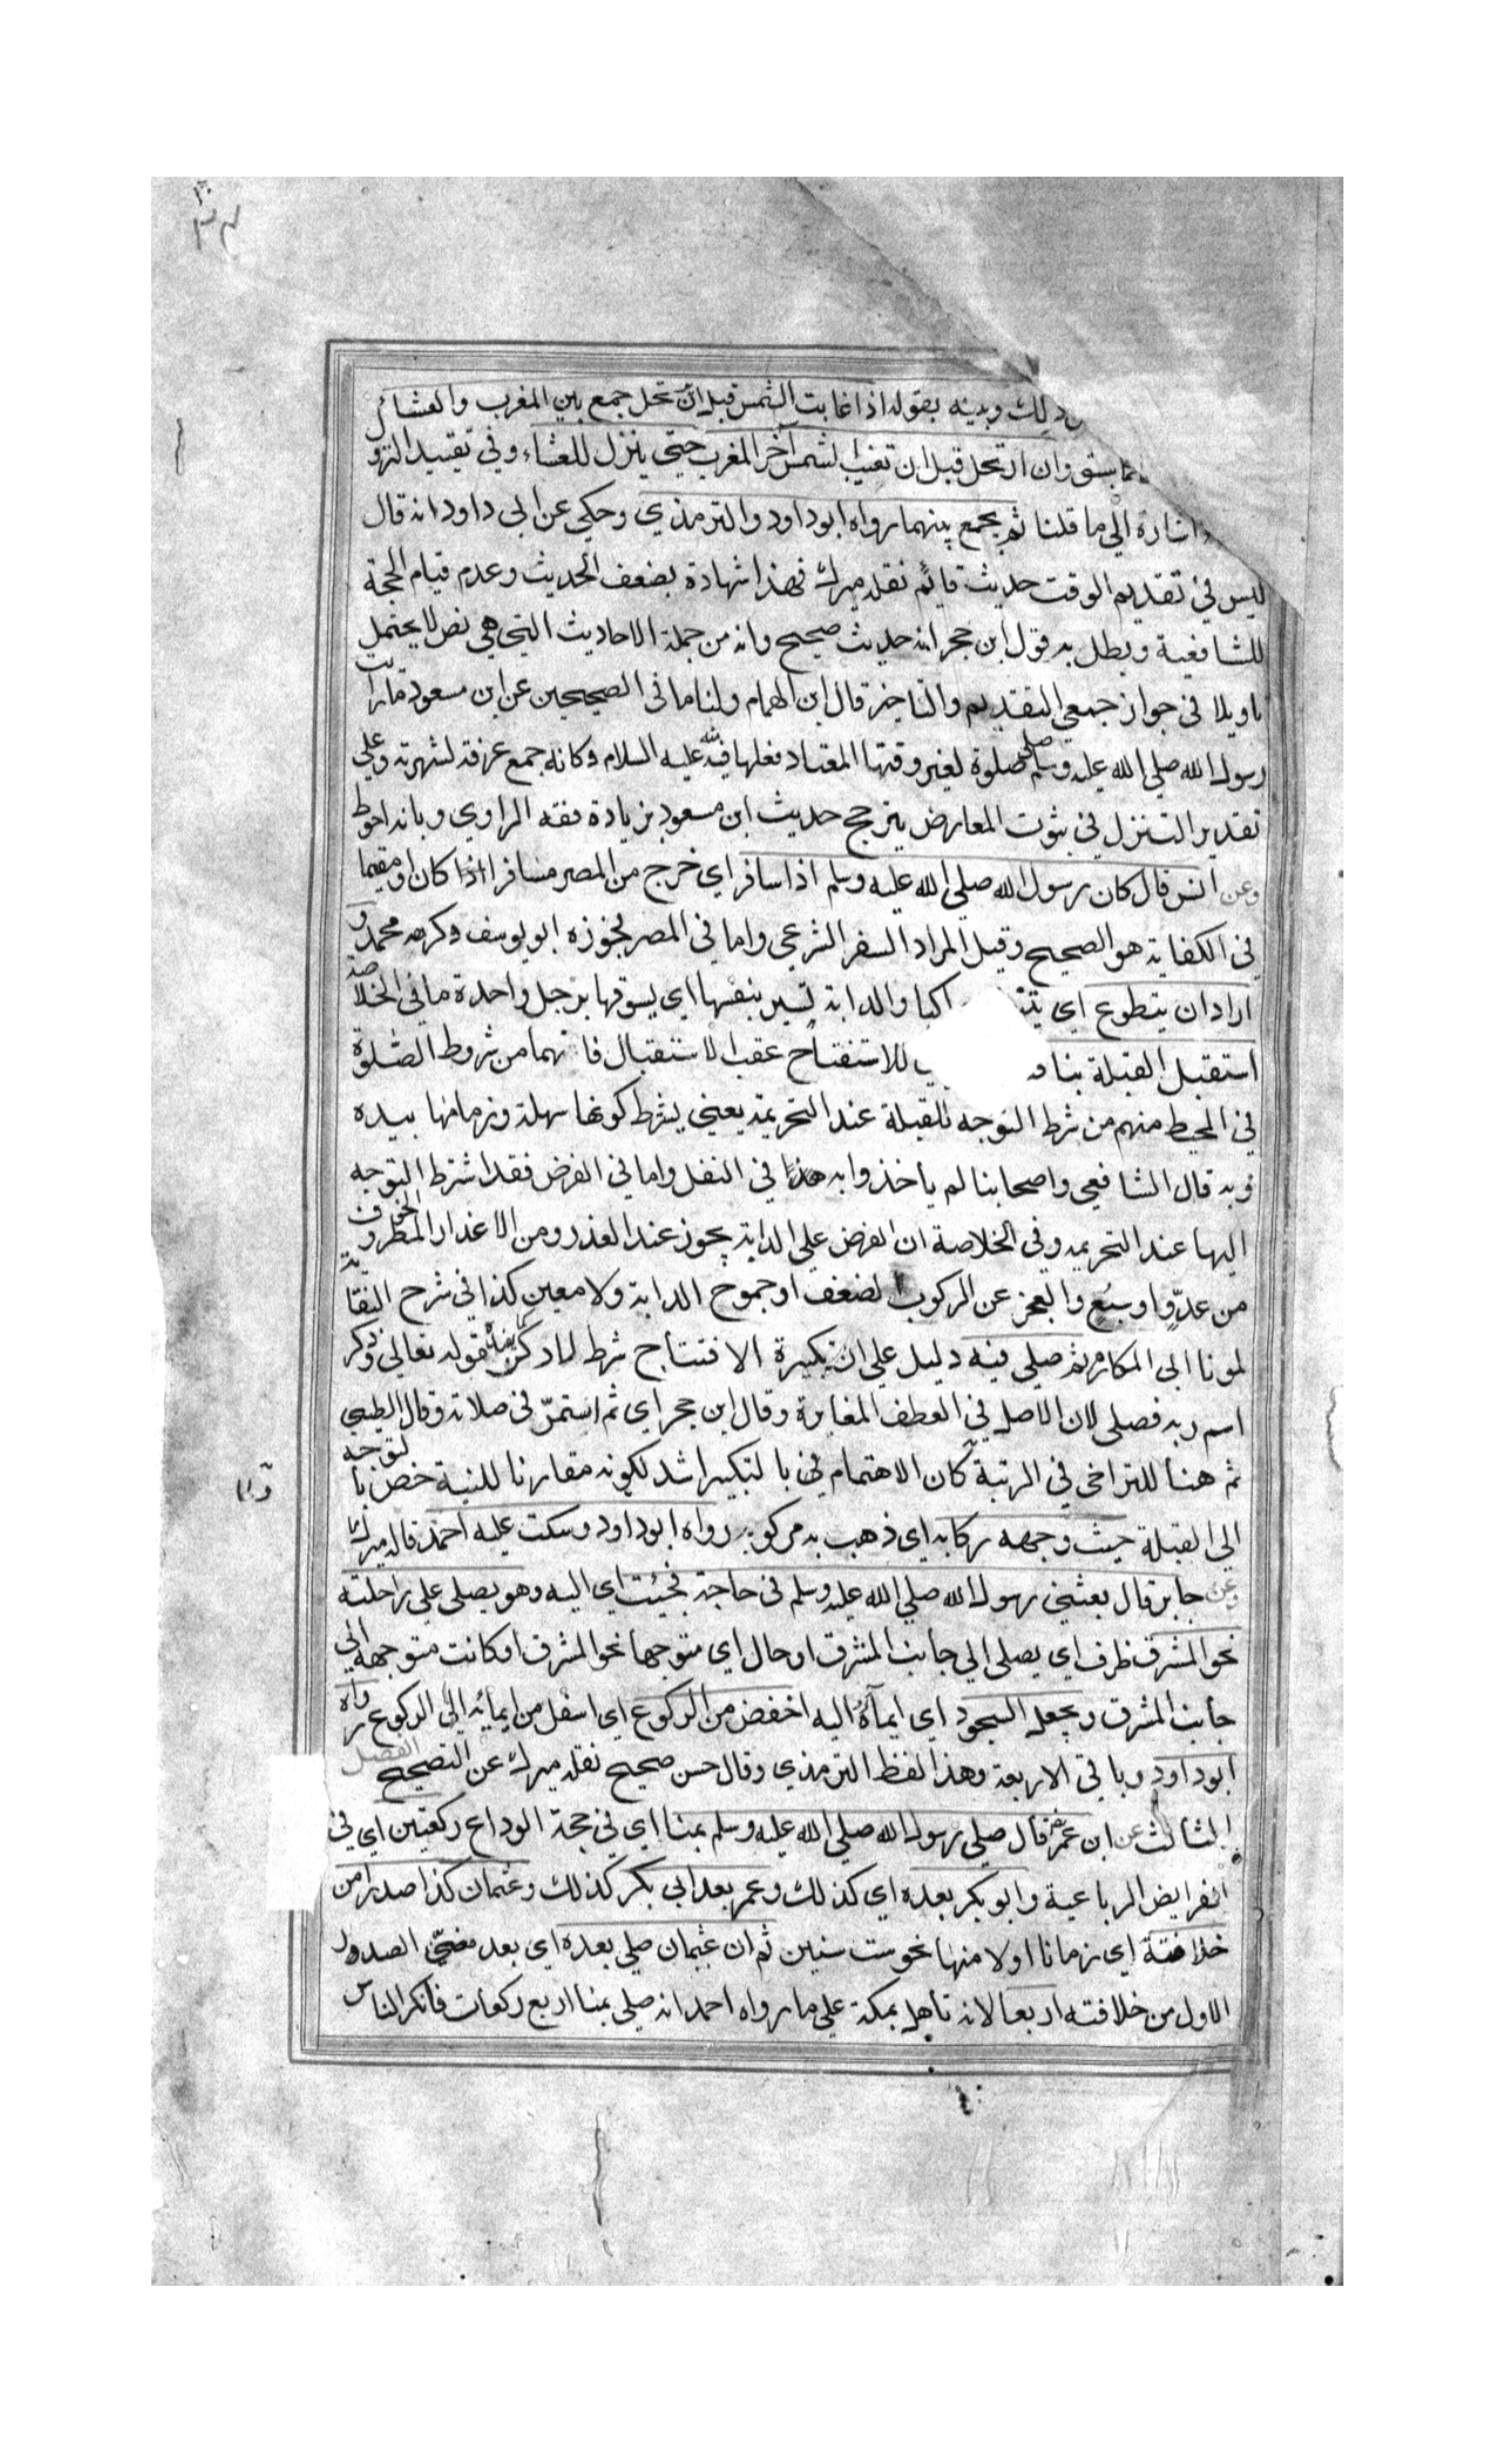 ذلك وبينه بقوله اذا غابت الشمس قبل ان يحل جمع بين المغرب والعشائل
ما سبق وان ارتحل قبل ان تغيب الشمس آخر المغرب حتي ينزل للعشاء وفي تقييد النزو
اشارة الي ما قلنا ثم يجمع بينهما رواه ابو داود والترمذي وحكي عن ابي داود انه قال
ليس في تقديم الوقت حديث قائم نقله ميرك فهذا شهادة بضعف الحديث وعدم قيام الحجة
للشافعية وبطل به قول ابن حجر انه حديث صحيح وانه من جملة الاحاديث التي هي نص لا يحتمل
تاويلا في جواز جمعي التقديم والتاخير قال ابن الهمام ولنا ما في الصحيحين عن ابن مسعود ما رايت
رسول الله صلي الله عليه وسلم صلي صلوة لغير وقتها المعتاد فعلها فيه عليه السلام وكانه جمع عرفة لشهرته وعلي
تقدير التنزل في ثبوت المعارض يترجح حديث ابن مسعود بزيادة فقه الراوي وبانه احوط
وعن انس قال كان رسول الله صلي الله عليه وسلم اذا سافر اي خرج من المصر مسافرا اذا كان او مقيما
في الكفاية هو الصحيح وقيل المراد السفر الشرعي واما في المصر فجوزه ابو يوسف وكرهه محمد و
اراد ان يتطوع اي راكبا والدابة تسير بنفسها اي يسوقها برجل واحدة ما في الخلاصة
استقبل القبلة بنا للاستفتاح عقب الاستقبال فانهما من شروط الصلوة
في المحيط منهم من شرط التوجه للقبلة عند التحريمة يعني بشرط كونها سهلة وزمامها بيده
وبه قال الشافعي واصحابنا لم ياخذوا به هذا في النفل واما في الفرض فقد اشترط التوجه
اليها عند التحريمه وفي الخلاصة ان الفرض علي الدابة يجوز عند العذر ومن الاعذار المطر والخوف
من عدو او سبع والعجز عن الركوب لضعف او جموح الدابة ولا معين كذا في شرح النقاية
لمونا ابي المكارم ثم صلي فيه دليل علي ان تكبيرة الافتتاح شرط لا ركن منه لقوله تعالي وذكر
اسم ربه فصلي لان الاصل في العطف المغايرة وقال ابن حجر اي ثم استمر في صلاته وقال الطيبي
ثم هنا للتراخي في الرتبة كان الاهتمام في با لتكبير اشد لكونه مقارنا للنية خص بالتوجه
الي القبلة حيث وجهه ركابه اي ذهب به مركوبه رواه ابو داود وسكت عليه احمد قاله ميرك
وعن جابر قال بعثني رسول الله صلي الله عليه وسلم في حاجة فجئت اي اليه وهو يصلي علي راحلته
نحو المشرق ظرف اي يصلي الي جانب المشرق او حال اي متوجها نحو المشرق او كانت متوجهه الي
جانب المشرق ويجعل السجود اي ايماءه اليه اخفض من الركوع اي اسفل من ايمائه الي الركوع رواه
ابو داود وباقي الاربعة وهذا لفظ الترمذي وقال حسن صحيح نقله ميرك عن التصحيح الفصل
الثالث عن ابن عمر قال صلي رسول الله صلي الله عليه وسلم بمنا اي في حجة الوداع ركعتين اي في
الفرايض الرباعية وابو بكر بعده اي كذلك وعمر بعد ابي بكر كذلك وعثمان كذا صدرا من
خلافته اي زمانا اولا منها نحو ست سنين ثم ان عثمان صلي بعده اي بعد مضي الصدول
الاول من خلافته اربعا لانه تاهل بمكة علي ما رواه احمد انه صلي بمنا اربع ركعات فانكر الناس